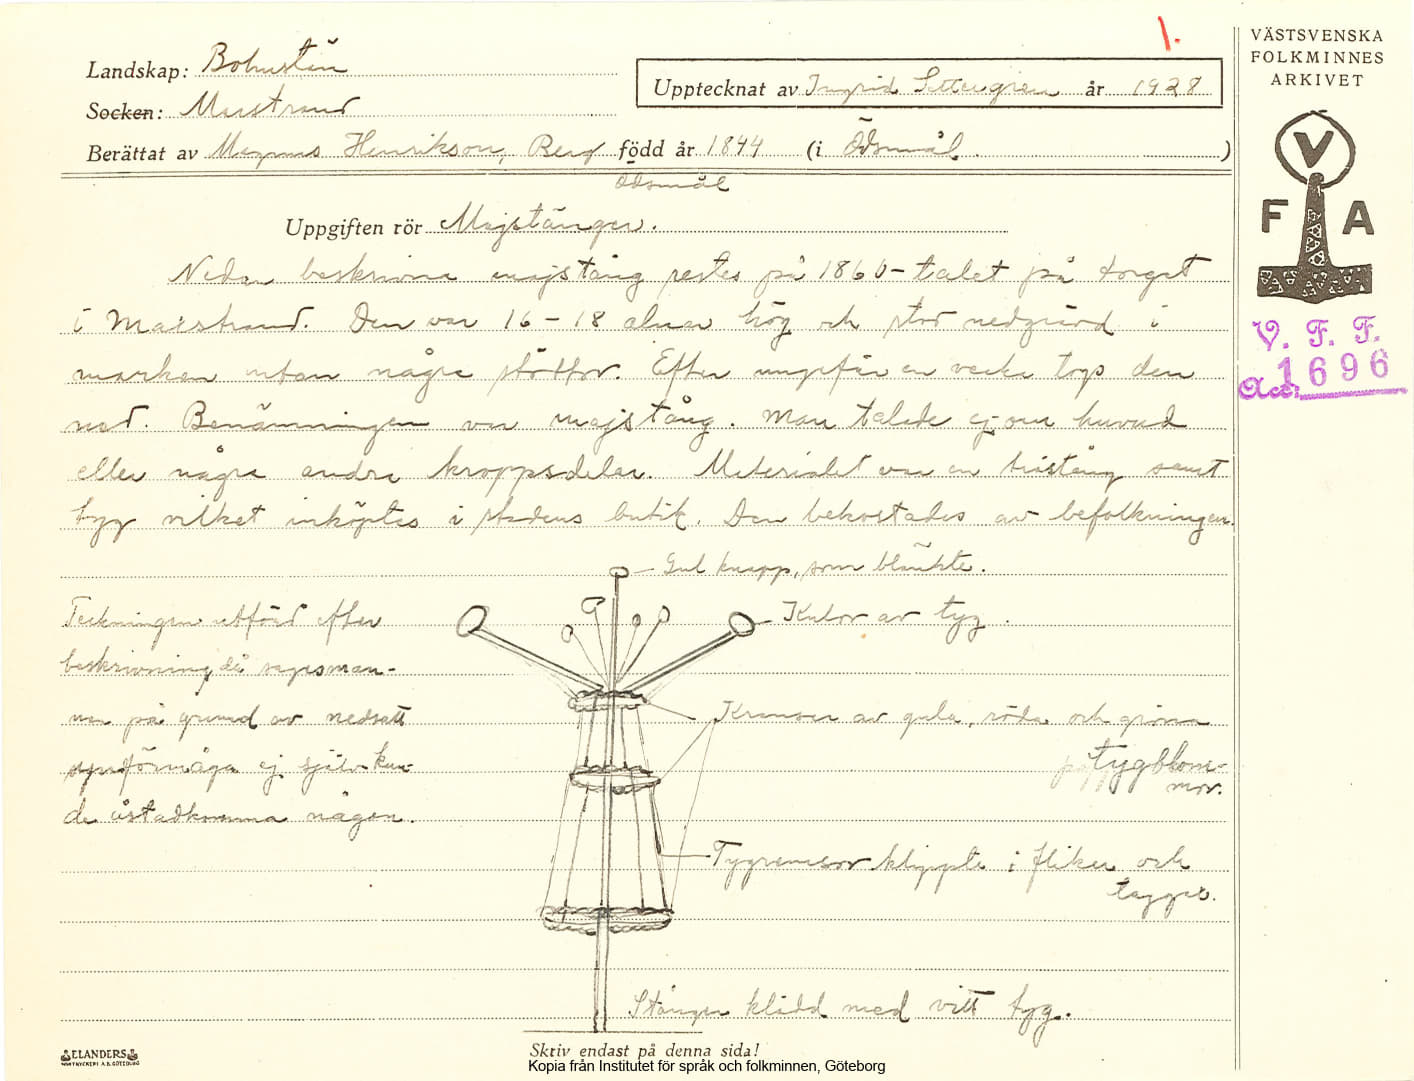 1.
VÄSTSVENSKA
FOLKMINNES
ARKIVET
V
F A
V. F. F.
Acc. 1696
Landskap: Bohuslän
Socken: Marstrand
Upptecknat av Ingrid år 1928
Berättat av Magnus Henrikson, Berg född år 1844 (i Ödsmål.)
Ödsmål
Uppgiften rör Majstänger.
Nedan beskrivna majstång restes på 1860-talet på torget
i Marstrand. Den var 16-18 alnar hög och stod nedgrävd i
marken utan några stöttor. Efter ungefär en vecka togs den
ned. Benämningen var majstång. Man talade ej om huvud
eller några andra kroppsdelar. Materialet var en trästång samt
tyg vilket inköptes i stadens butik. Den bekostades av befolkningen.
Gul knapp, som blänkte.
Kulor av tyg.
Teckningen utförd efter
beskrivning då sagesman-
nen på grund av nedsatt
synförmåga ej själv kun-
de åstadkomma någon.
Kransar av gula, röda och gröna
tygblom-
mor.
Tygremsor klippta i flikar och
taggar.
Stången klädd med vitt tyg.
ELANDERS
Skriv endast på denna sida!
Kopia från Institutet för språk och folkminnen, Göteborg